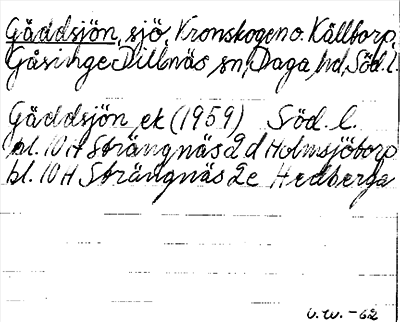 Gäddsjön, sjö, Kronskogen o. Källtorp,
Gåsinge-Dillnäs sn, Daga hd, Söd. l.
Gäddsjön ek (1959) Söd. l.
bl. 10 H Strängnäs 2 d Holmsjötorp
bl. 10 H Strängnäs 2 e Hedberga
V. W. -62